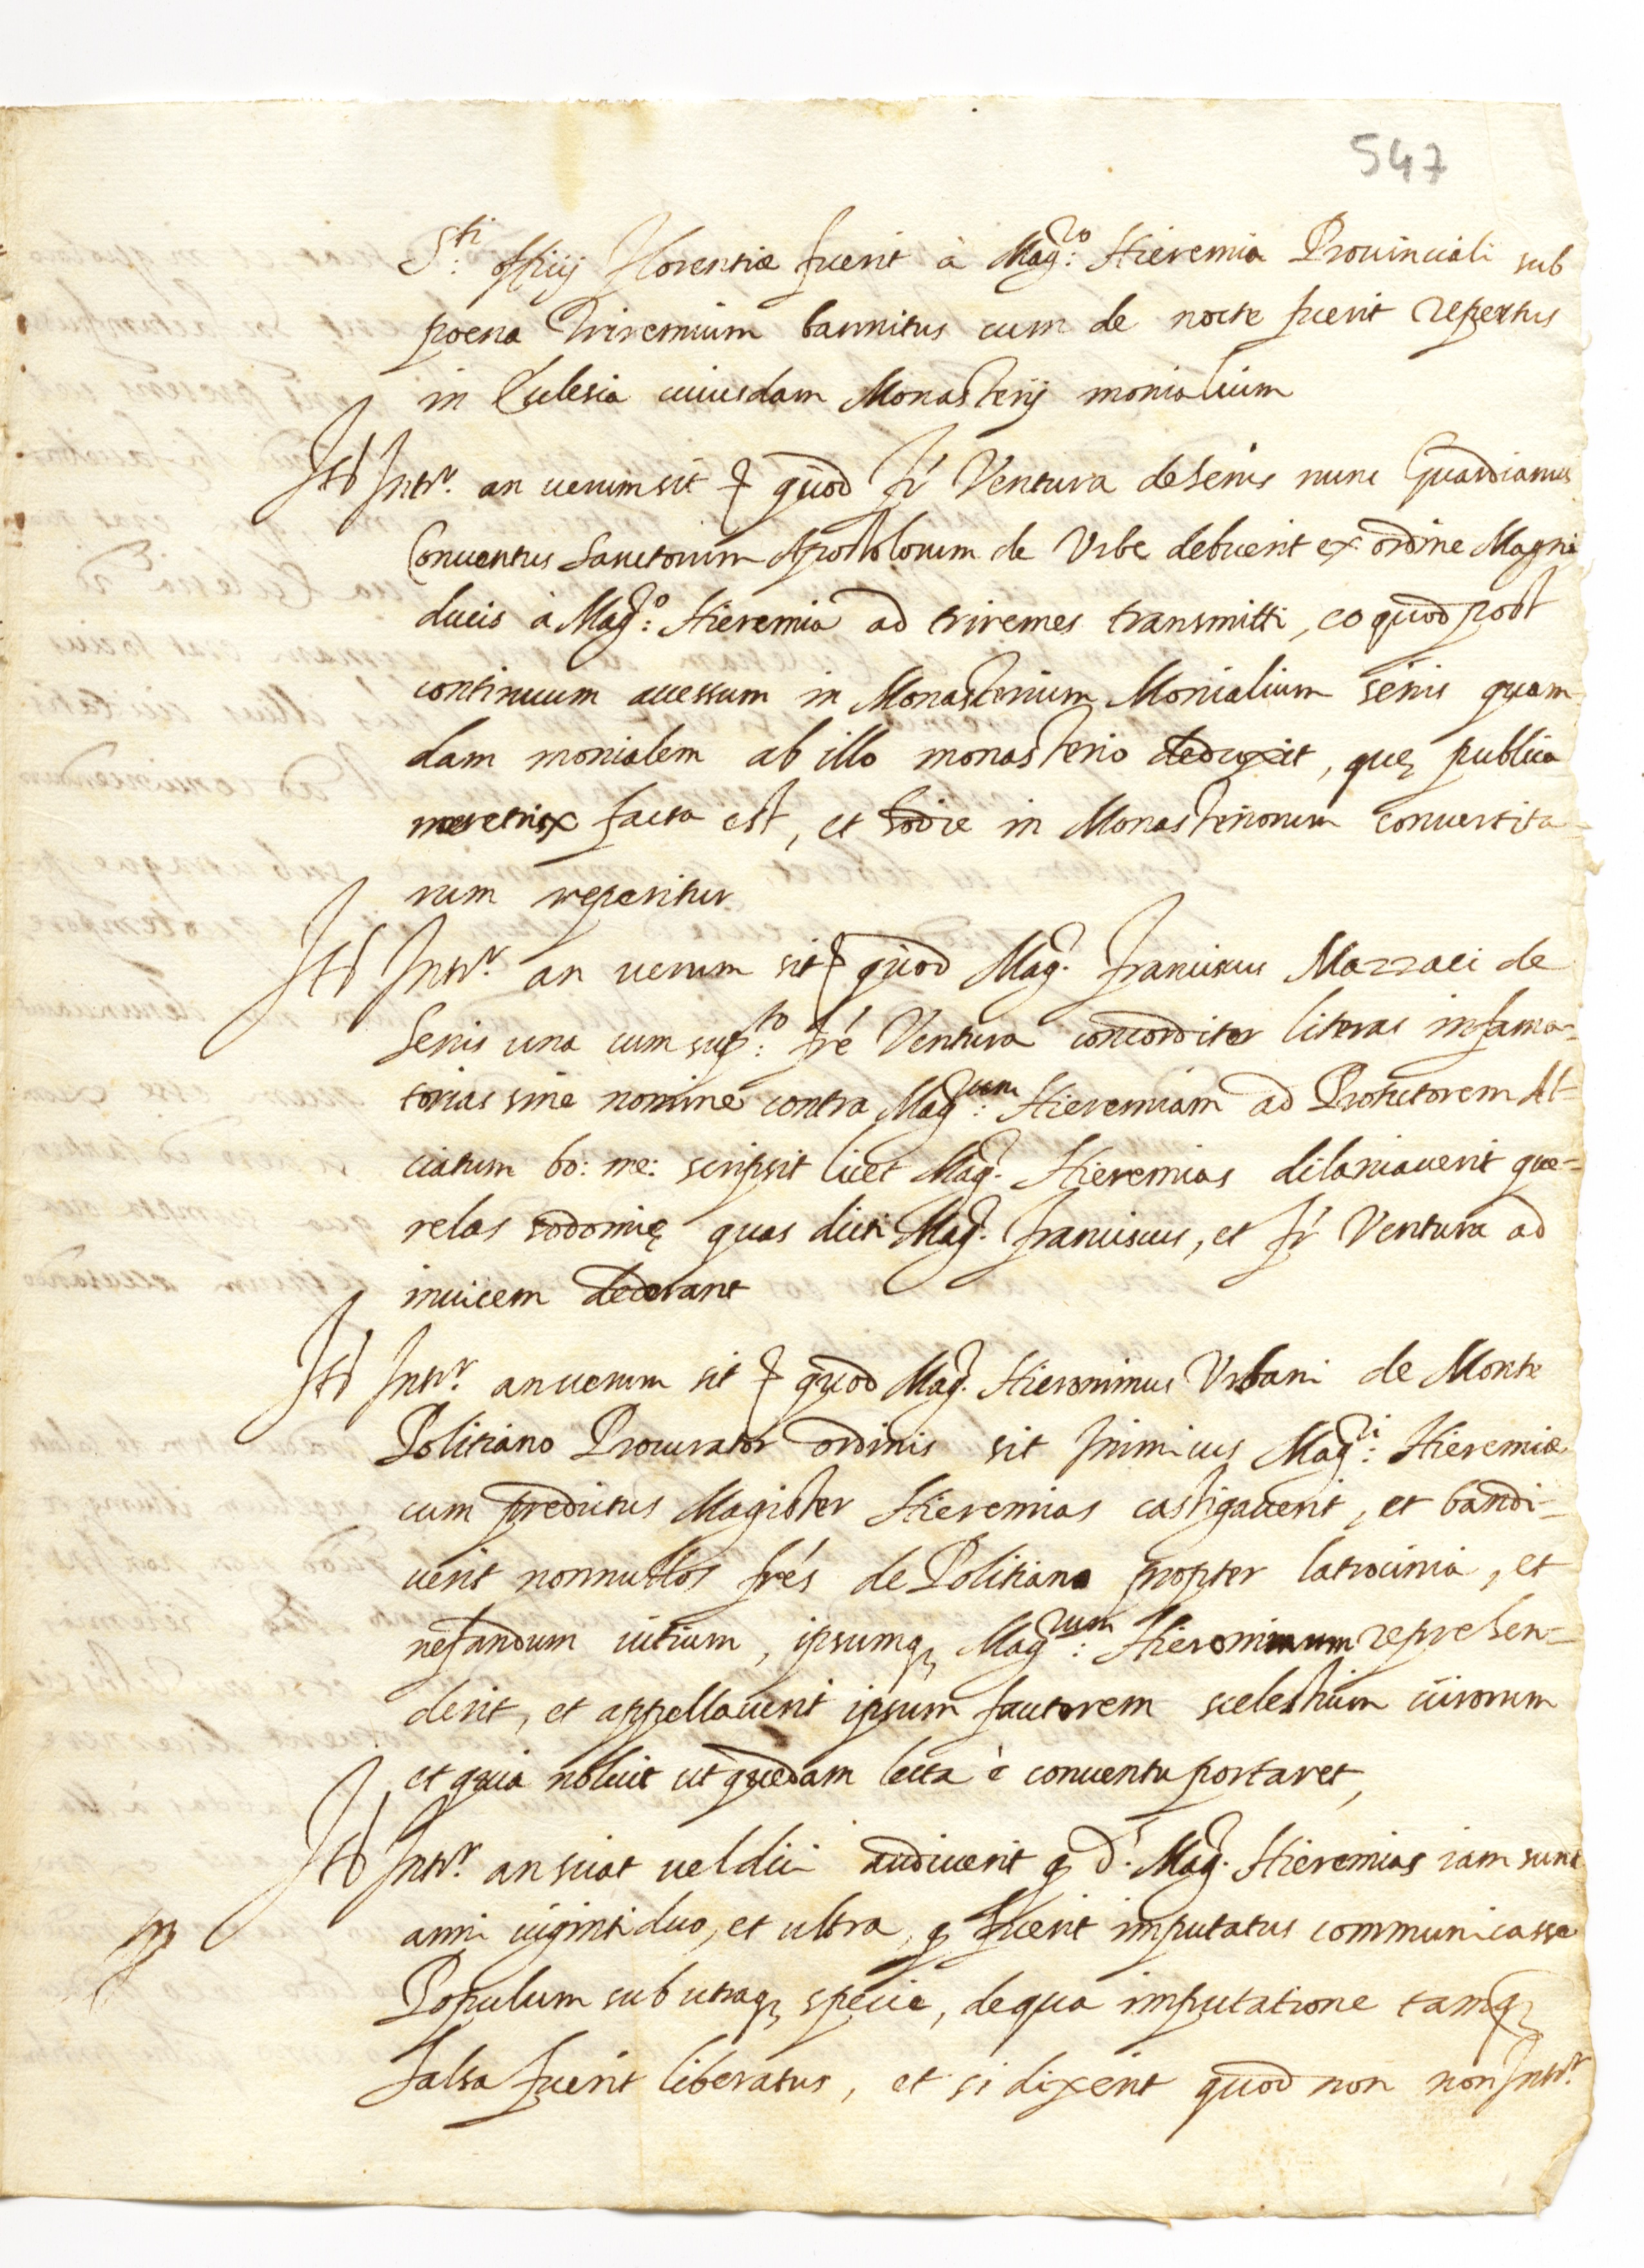 547
S.ti offitij Florentiæ fuerit à Mag.ro Hieremia Prouinciali sub
poena Triremium bannitus cum de nocte fuerit repertus
in Eclesia cuiusdam Monasterij monialium
Itē Intr.r an uerum sit quod fr̄ Ventura de Senis nunc Guardianus
Conuentus Sanctorum Apostolorum de Vrbe debuerit ex ordine Magni
ducis à Mag.o Hieremia ad triremes transmitti, eo quod post
continuum accessum in Monasterium Monialium senis quam
dam monialem ab illo monasterio deduxit, quę publica
meretrix facta est, et hodie in Monasterionum conuertita=
rum reperitur
Itē Intr.r an uerum sit quod Mag. franciscus Mazzaei de
Senis una cum sup.to fr̄e Ventura concorditer literas infama=
torias sine nomine contra Mag.rum Hieremiam ad Protectorem Al=
ciatum bo: me: scripsit licet Mag. Hieremias dilaniauerit que=
relas sodomię quas dicti Mag. franciscus, et fr̄ Ventura ad
inuicem dederant
Itē Intr.r an uerum sit quod Mag. Hieronimus Vrbani de Monte
Politiano Procurator ordinis sit Inimicus Mag.ri Hieremiæ
cum predictus Magister Hieremias castigauerit, et bandi=
uerit nonnullos fr̄es de Politiano propter latrocinia, et
nefandum uitium, ipsumq; Mag.rum Hieronimum reprehen=
derit, et appellauerit ipsum fautorem scelestium uirorum
et quia noluit ut quędam lecta è conuentu portaret,
Itē Intr.r an sciat uel dici audiuerit q d. Mag. Hieremias iam sunt
anni uiginti duo, et ultra, q fuerit imputatus communicasse
Populum sub utraq; specie, de qua imputatione tamq;
falsa fuerit liberatus, et si dixerit quod non non Intr.r